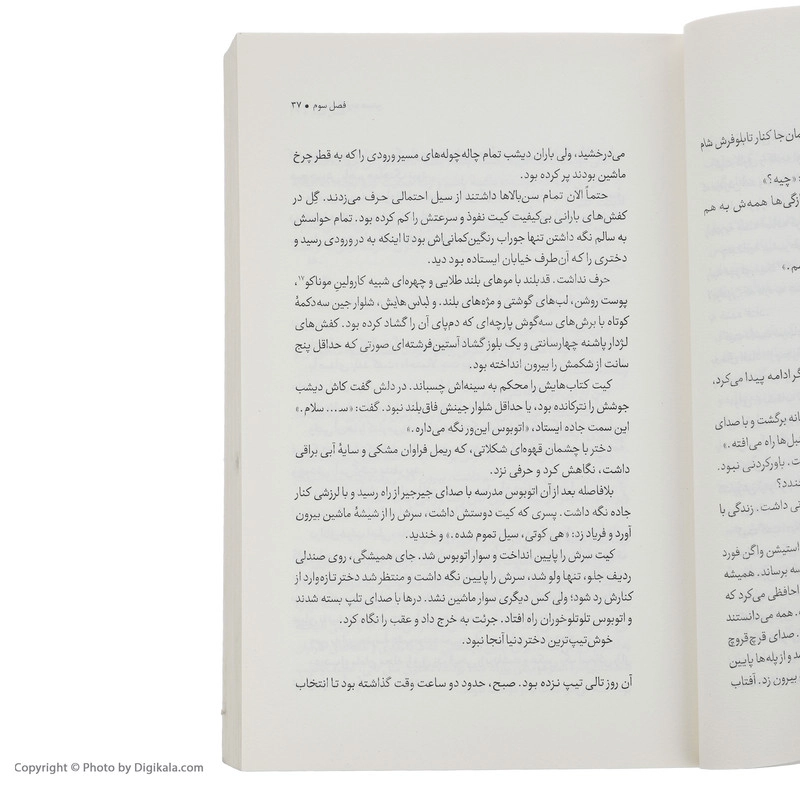 فصل سوم • ۳۷
می‌درخشید، ولی باران دیشب تمام چاله‌چوله‌های مسیر ورودی را که به قطر چرخ
ماشین بودند پر کرده بود.
حتماً الان تمام سن‌بالاها داشتند از سیل احتمالی حرف می‌زدند. گِل در
کفش‌های بارانی بی‌کیفیت کیت نفوذ و سرعتش را کم کرده بود. تمام حواسش
به سالم نگه داشتن تنها جوراب رنگین‌کمانی‌اش بود تا اینکه به در ورودی رسید و
دختری را که آن‌طرف خیابان ایستاده بود دید.
حرف نداشت. قدبلند با موهای بلند طلایی و چهره‌ای شبیه کارولینِ موناکو۱۷،
پوست روشن، لب‌های گوشتی و مژه‌های بلند. و لباس‌هایش، شلوار جین سه‌دکمهٔ
کوتاه با برش‌های سه‌گوش پارچه‌ای که دم‌پای آن را گشاد کرده بود. کفش‌های
لژدار پاشنه چهارسانتی و یک بلوز گشاد آستین‌فرشته‌ای صورتی که حداقل پنج
سانت از شکمش را بیرون انداخته بود.
کیت کتاب‌هایش را محکم به سینه‌اش چسباند. در دلش گفت کاش دیشب
جوشش را نترکانده بود، یا حداقل شلوار جینش فاق‌بلند نبود. گفت: «سـ... سلام.»
این سمت جاده ایستاد، «اتوبوس این‌ور نگه می‌داره.»
دختر با چشمان قهوه‌ای شکلاتی، که ریمل فراوان مشکی و سایهٔ آبی براقی
داشت، نگاهش کرد و حرفی نزد.
بلافاصله بعد از آن اتوبوس مدرسه با صدای جیرجیر از راه رسید و با لرزشی کنار
جاده نگه داشت. پسری که کیت دوستش داشت، سرش را از شیشهٔ ماشین بیرون
آورد و فریاد زد: «هی کوتی، سیل تموم شده.» و خندید.
کیت سرش را پایین انداخت و سوار اتوبوس شد. جای همیشگی، روی صندلی
ردیف جلو، تنها ولو شد، سرش را پایین نگه داشت و منتظر شد دختر تازه‌وارد از
کنارش رد شود؛ ولی کس دیگری سوار ماشین نشد. درها با صدای تلپ بسته شدند
و اتوبوس تلوتلوخوران راه افتاد. جرئت به خرج داد و عقب را نگاه کرد.
خوش‌تیپ‌ترین دختر دنیا آنجا نبود.
آن روز تالی تیپ نزده بود. صبح، حدود دو ساعت وقت گذاشته بود تا انتخاب
مان‌جا کنار تابلوفرش شام
«چیه؟»
زگی‌ها همه‌ش به هم
گر ادامه پیدا می‌کرد،
انه برگشت و با صدای
سیل‌ها راه می‌افته.»
باورکردنی نبود.
داشت. زندگی با
استیشن واگن فورد
سه برساند. همیشه
احافظی می‌کرد که
همه می‌دانستند
صدای قرچ‌قروچ
د و از پله‌ها پایین
بیرون زد. آفتاب
Copyright © Photo by Digikala.com